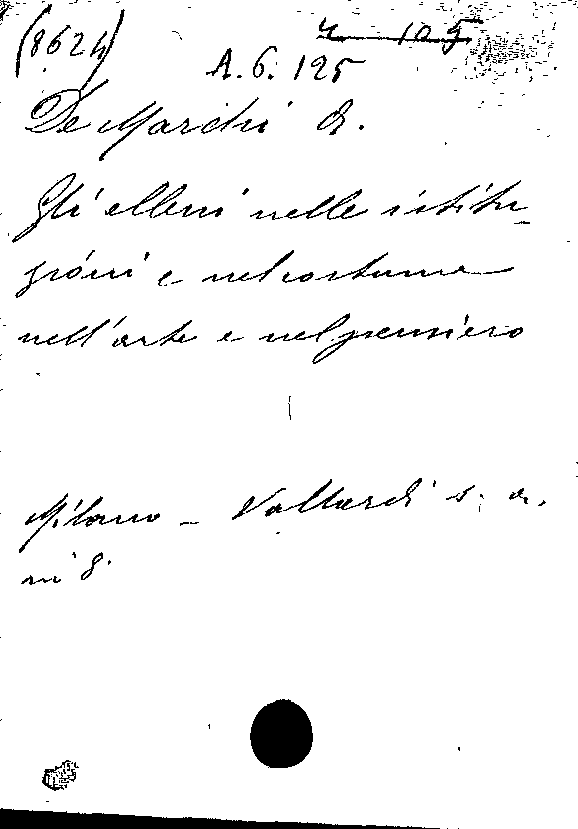 (8624)
A. 6. 125
De Marchi A.
Gli elleni nelle istitu-
zioni e nel costume
nell'arte e nel pensiero
Milano - Vallardi s. a.
in 8.